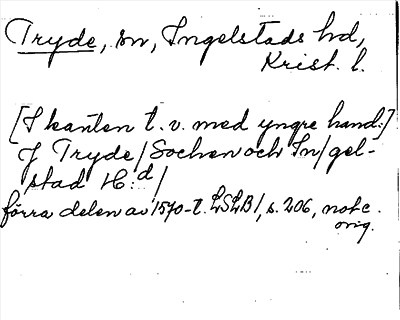 Tryde, sn, Ingelstads hd,
Krist. l.
[I kanten t. v. med yngre hand:]
J Tryde/Sochen och In/gel-
stad H:d/
förra delen av 1570-t. LSLB1, s. 206, not c.
orig.